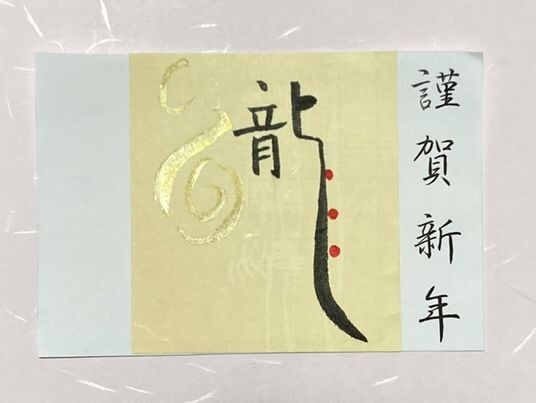 謹賀新年
龍